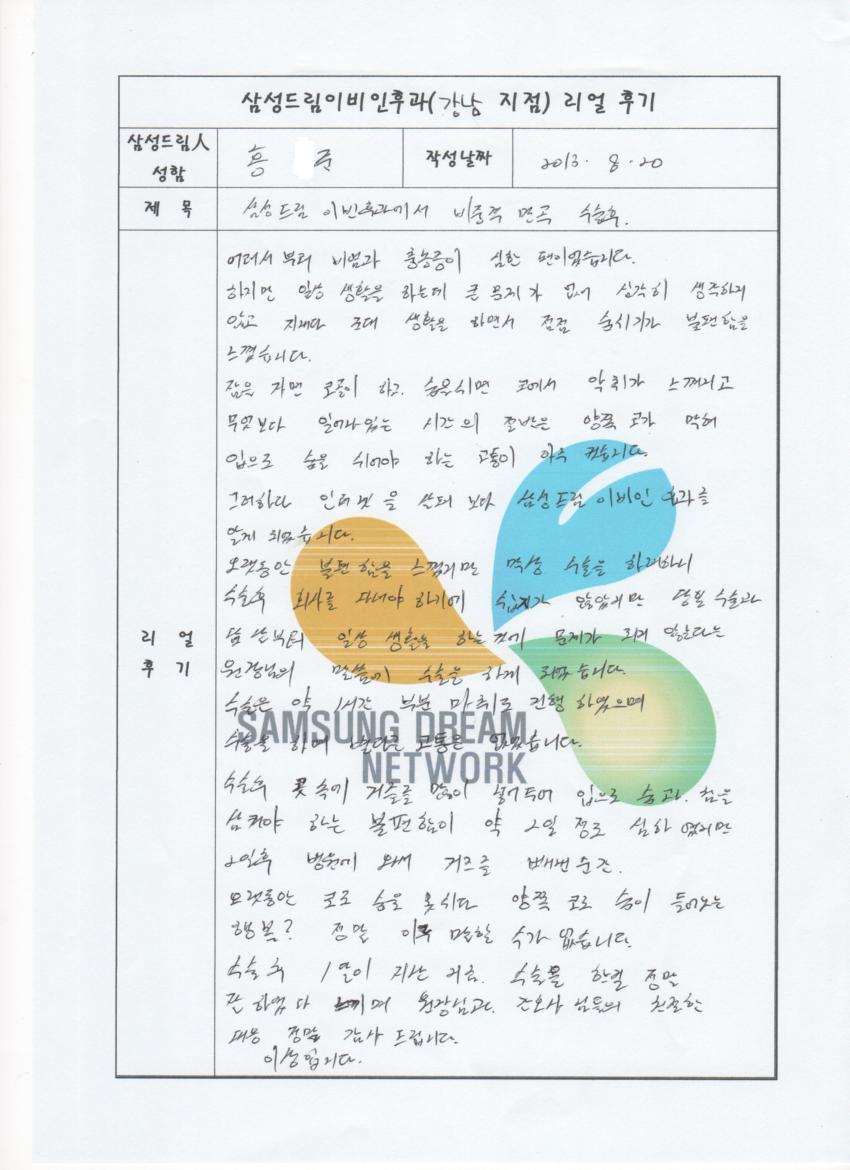 삼성드림이비인후과(강남 지점) 리얼 후기
삼성드림人 성함 홍 준 작성날짜 2013. 8. 20
제 목 삼성드림 이빈후과에서 비중격 만곡 수술후.
어려서 부터 비염과 충농증이 심한 편이었습니다.
하지만 일상 생활을 하는데 큰 문제가 없어 심각히 생각하지
않고 지내다 군대 생활을 하면서 점점 숨쉬기가 불편함을
느꼈습니다.
잠을 자면 코골이 하고. 숨을쉬면 코에서 악취가 느껴지고
무엇보다 일어나있는 시간의 절반은 양쪽 코가 막혀
입으로 숨을 쉬어야 하는 고통이 아주 컸습니다.
그러하다 인터넷을 살펴 보다 삼성드림 이비인후과를
알게 되었습니다.
오랫동안 불편함을 느꼈지만 막상 수술을 하려하니
수술후 회사를 다녀야 하기에 쉽지가 않았지만 당일 수술과
담날부터 일상 생활을 하는것에 문제가 되지 않는다는
원장님의 말씀에 수술을 하게 되었습니다.
수술은 약 1시간 부분 마취로 진행 하였으며
수술을 하며 별다른 고통은 없었습니다.
SAMSUNG DREAM
NETWORK
수술후 콧속에 거즈를 많이 넣어두어 입으로 숨과. 침을
삼켜야 하는 불편함이 약 2일 정도 심하였지만
2일후 병원에 와서 거즈를 빼낸순간.
오랫동안 코로 숨을 못쉬다 양쪽 코로 숨이 들어오는
행복? 정말 이루 말할 수가 없습니다.
수술후 1달이 지난 지금. 수술을 한걸 정말
잘 하였다 느끼며 원장님과. 간호사님들의 친절한
대응 정말 감사 드립니다.
이상입니다.
리 얼
후 기